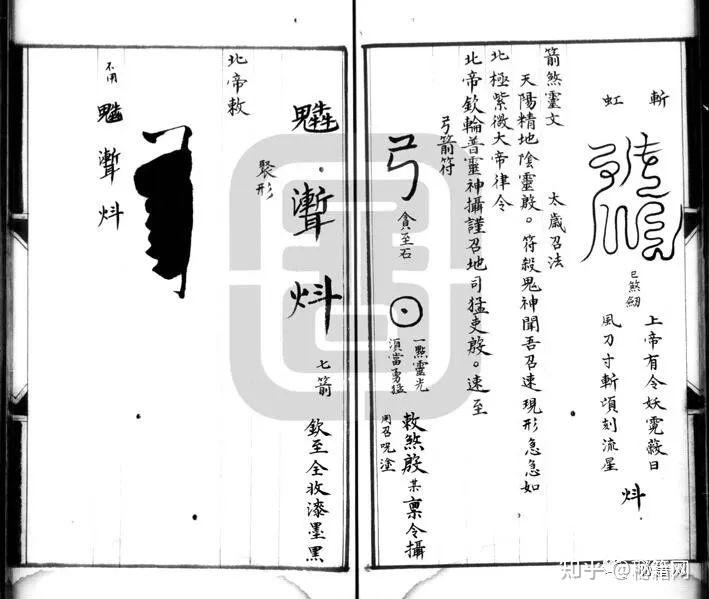 斬虹
上帝有令妖霓蔽日
風刀寸斬頃刻流星
炓
箭煞靈文 太歲召法
天陽精地陰靈殷。符殺鬼神聞吾召速現形急急如
北極紫微大帝律令
北帝欽輪普靈神攝謹召地司猛吏殷。速至
弓箭符
弓
貪至石
一點靈光
須當勇猛
敕煞殷某稟令攝
用召咒塗
炓
七箭
欽至全收漆墨黑
聚形
北帝敕
不用
炓
知乎 @秘籍网